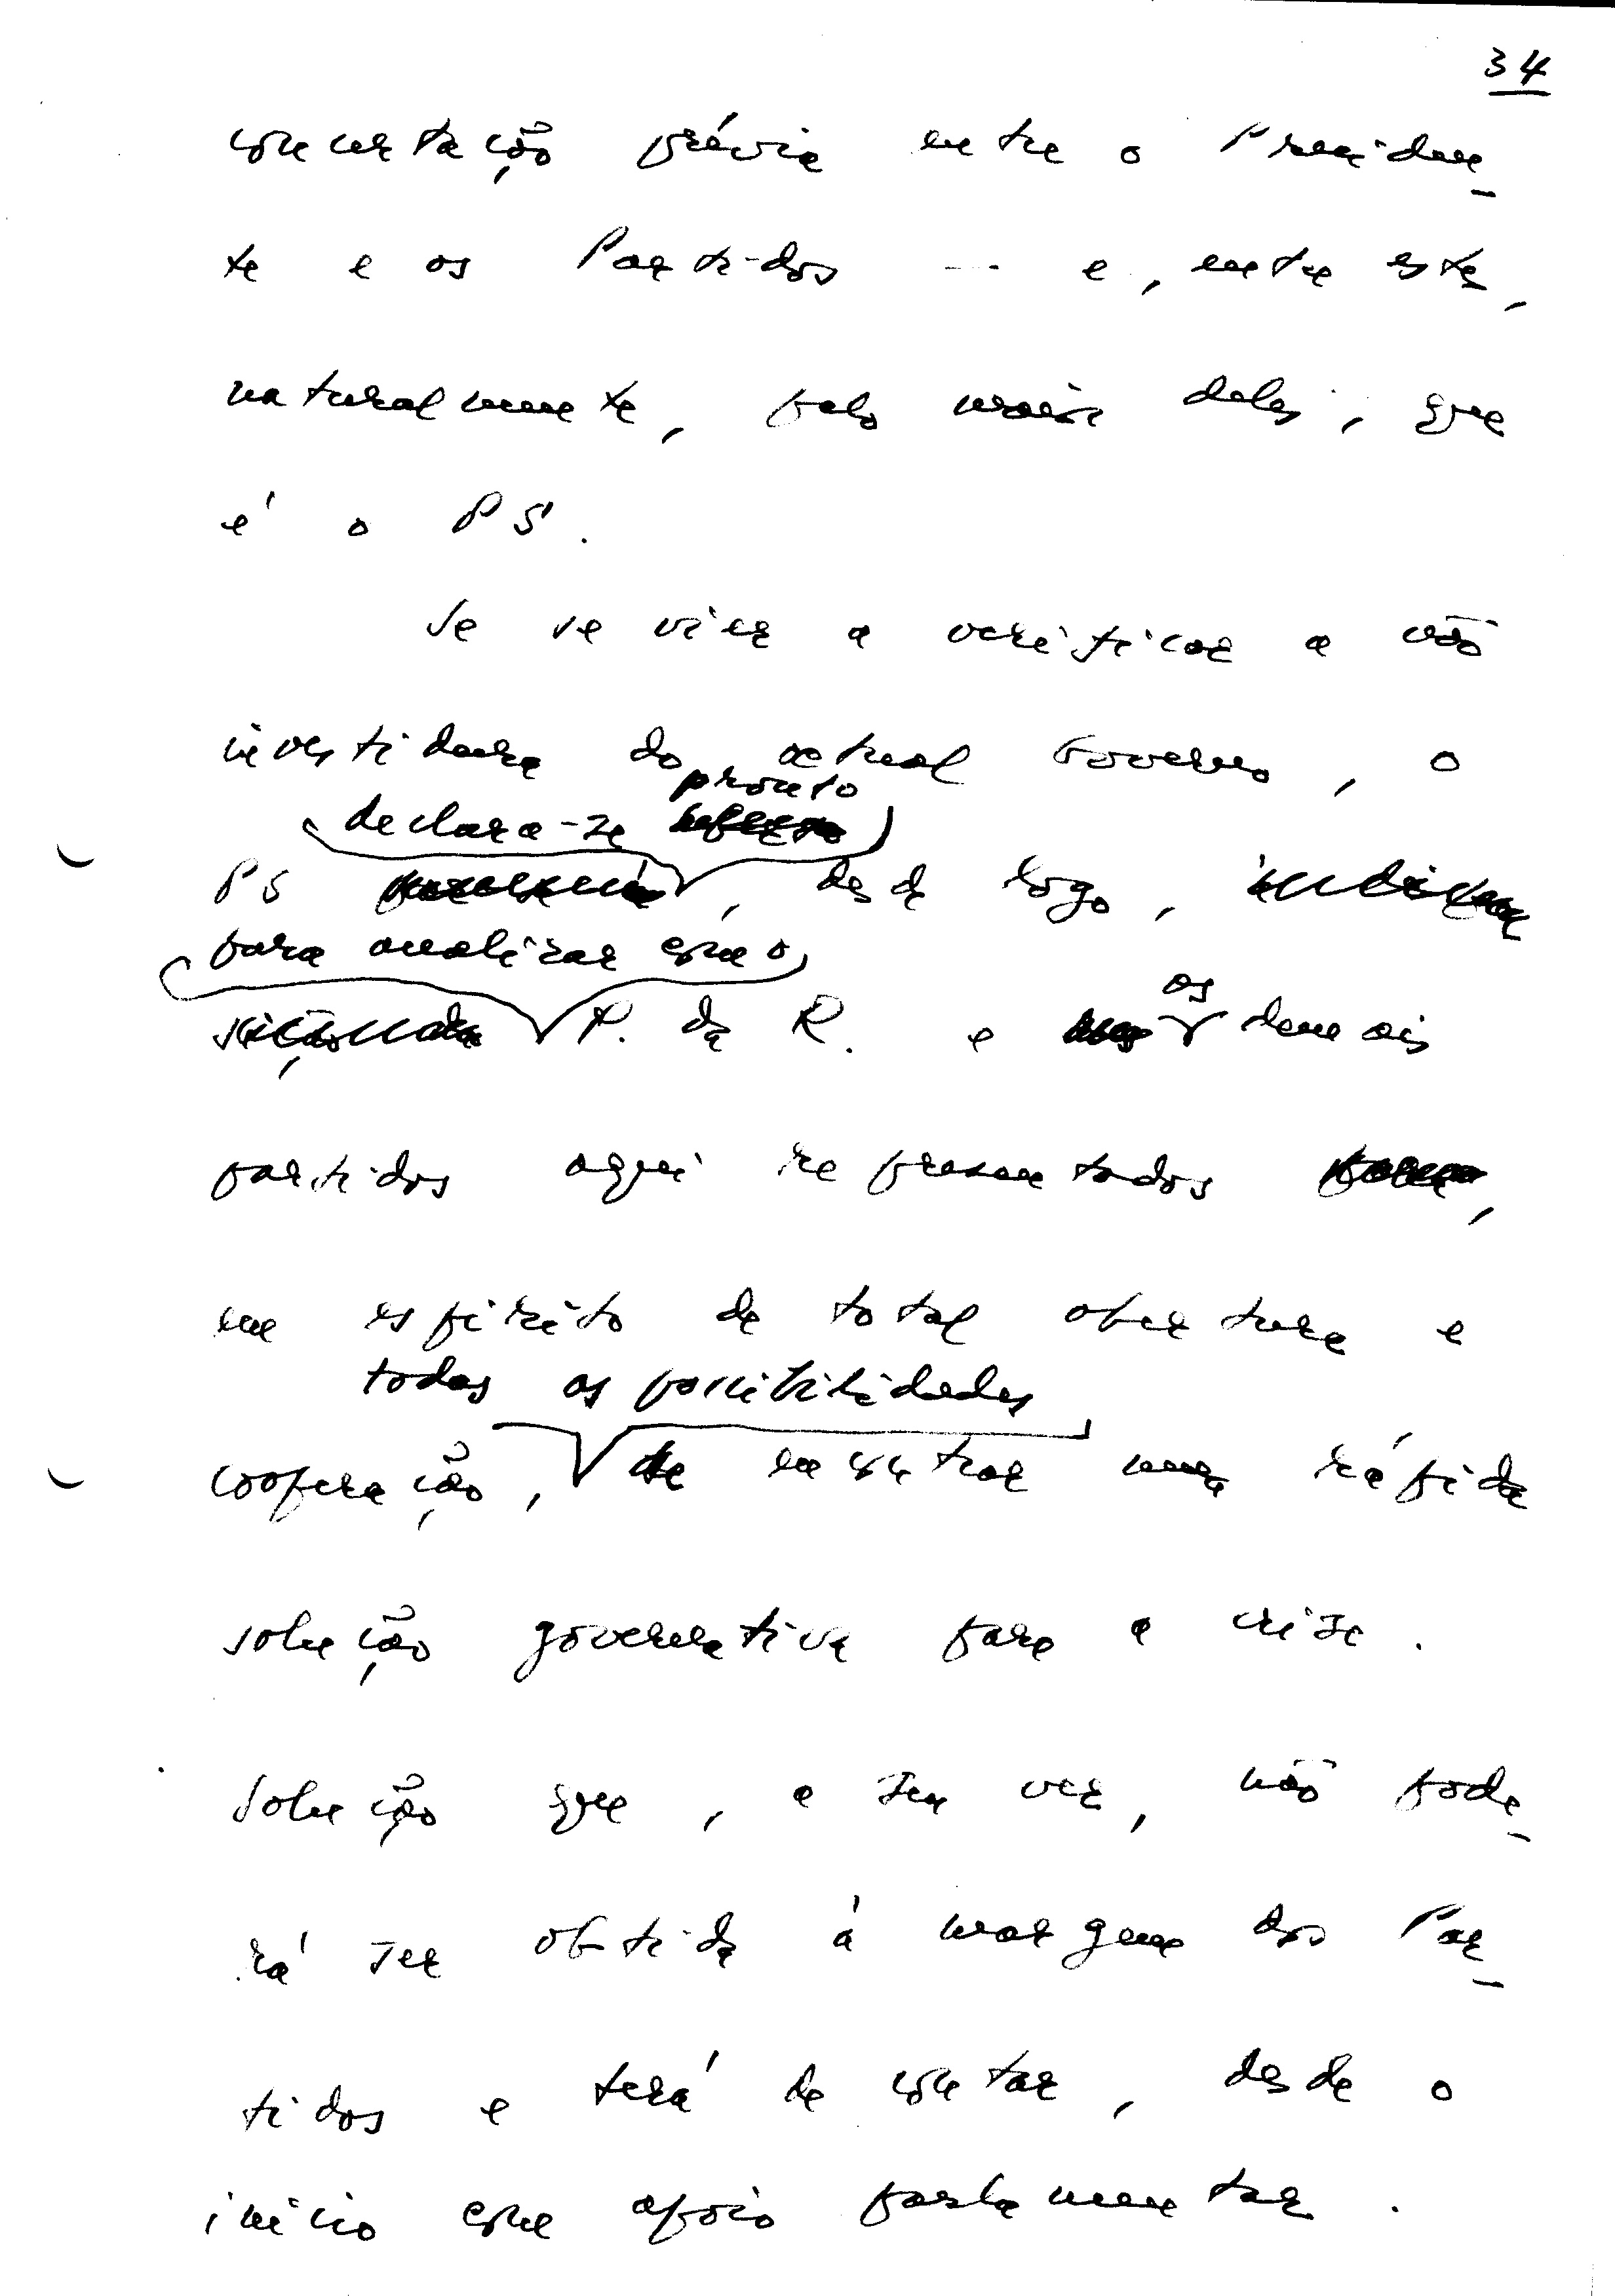 34
concertação prévia entre o Presiden-
te e os Partidos -- e, entre estes,
naturalmente, pelo maior deles, que
é o PS.
Se se vier a verificar a não
investidura do actual Governo, o
declara-se pronto
PS , desde logo,
para analisar com o
P. da R. e os demais
partidos aqui representados ,
em espírito de total abertura e
todas as possibilidades
cooperação, de encontrar uma rápida
solução governativa para a crise.
Solução que, a seu ver, não pode-
rá ser obtida à margem dos Par-
tidos e terá de contar, desde o
início com apoio parlamentar.